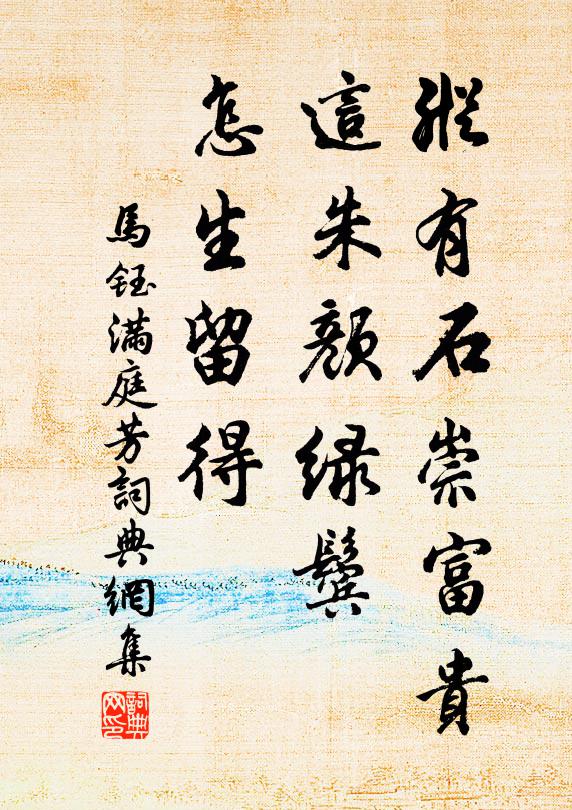 縱有石崇富貴
這朱顏綠鬢
怎生留得
馬鈺滿庭芳詞典網集
詞典網印